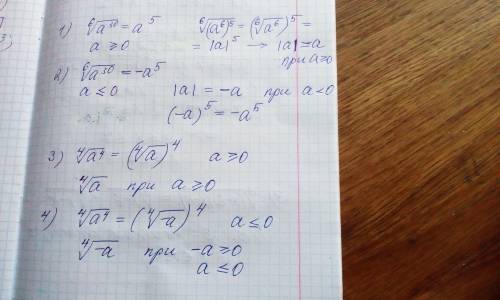 1) ⁶√a³⁰ = a⁵ ⁶√(a⁶)⁵ = (⁶√a⁶)⁵ =
a ≥ 0 = |a|⁵ → |a| = a
при a ≥ 0
2) ⁶√a³⁰ = -a⁵
a ≤ 0 |a| = -a при a < 0
(-a)⁵ = -a⁵
3) ⁴√a⁴ = (⁴√a)⁴ a ≥ 0
⁴√a при a ≥ 0
4) ⁴√a⁴ = (⁴√-a)⁴ a ≤ 0
⁴√-a при -a ≥ 0
a ≤ 0